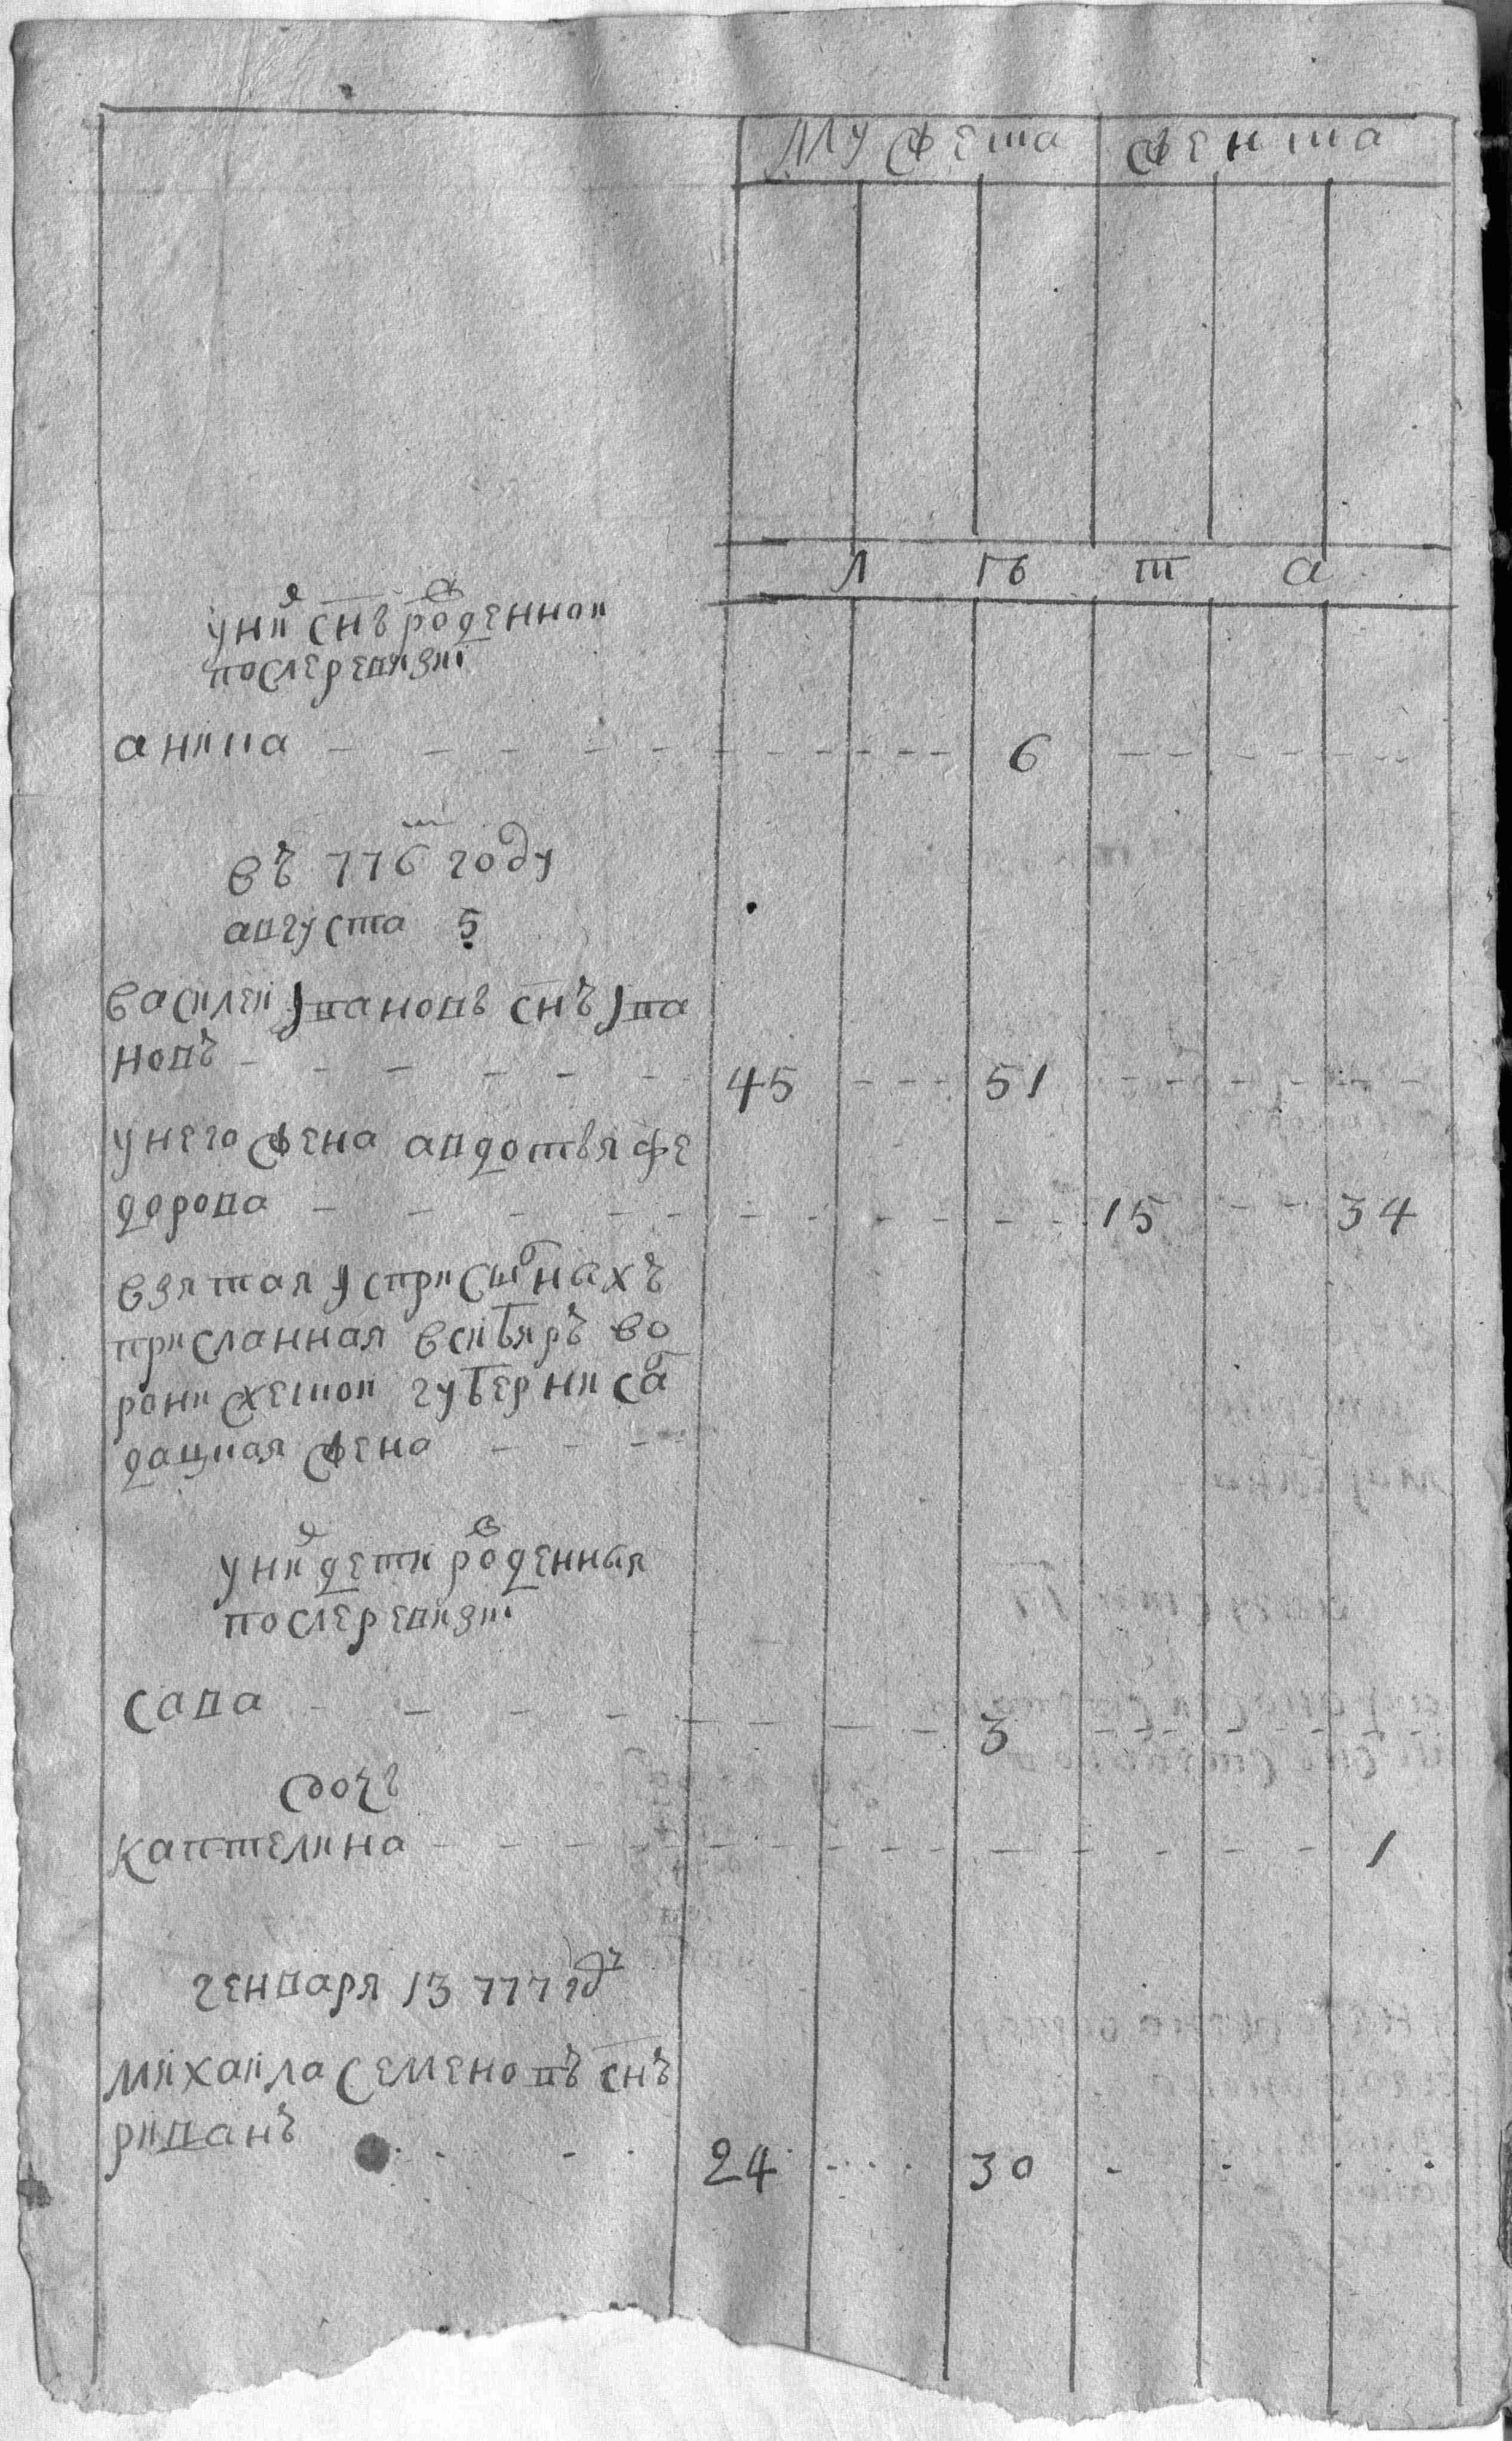 мужеска женска
л ѣ т а
у них снъ рожденнои
после ревизи
аника 6
въ 776м году
августа 5
василеи Iвановъ снъ Iва
новъ 45 51
у него жена авдотья фе
дорова 15 34
взятая Iс присылныхъ
присланная в сибирь во
ронижской губерни сал
дацкая жена
у них дети рожденныя
после ревизи
сава 3
дочь
каптелина 1
генваря 13 777 годъ
михаила семеновъ снъ
24 30